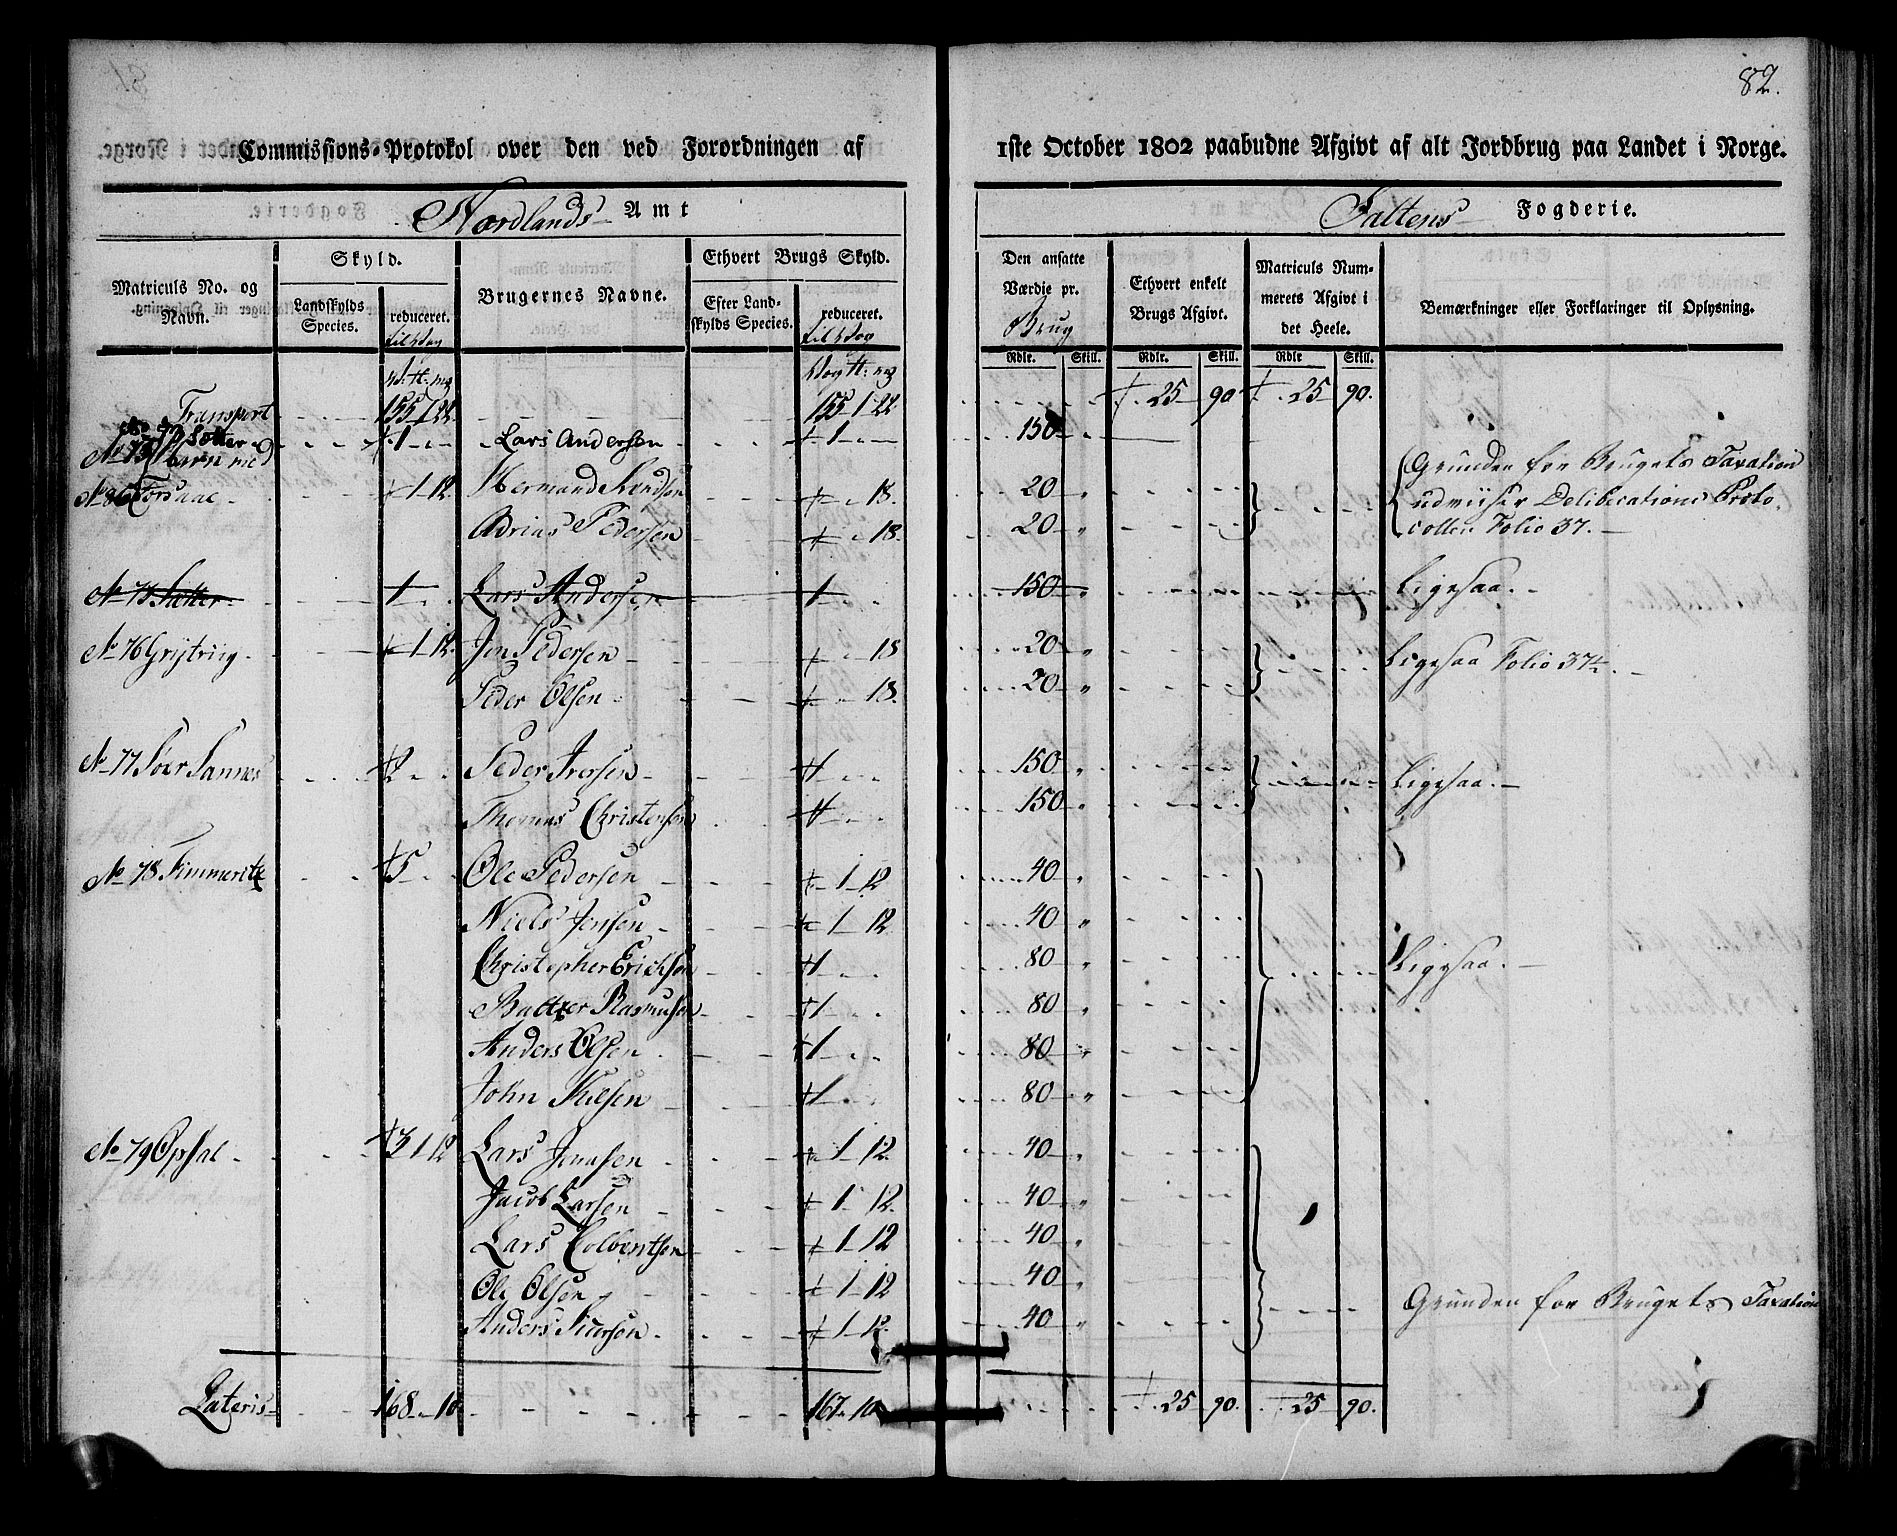 82.
Commissions-Protokol over den ved Forordningen af 1ste October 1802 paabudne Afgivt af alt Jordbrug paa Landet i Norge.
Nordlands Amt
Saltens Fogderie.
Matriculs No. og Navn.
Skyld.
Landskylds Species.
reduceret.
Brugernes Navne.
Ethvert Brugs Skyld.
Efter Landskylds Species.
reduceret.
Den ansatte Værdie pr. Brug
Ethvert enkelt Brugs Afgivt.
Matriculs Nummerets Afgivt i det Heele.
Bemærkninger eller Forklaringer til Oplysning.
Rdlr. Skill. Rdlr. Skill. Rdlr Skill.
Transport 155 1 22 155 1 22 25 90 25 90.
Sætter 1 Lars Andersen 1 150
1 12. Hermand 18. 20 Grunden for Brugets Taxation
Adrias Pedersen 18. 20 udviiser Delibrations Proto-
collen Folio 37.
No 75 Sætter 1 Lars Andersen 1 150 Ligesaa.
No 76 1 12. Jon Pedersen 18 20 Ligesaa Folio 37
Peder Olsen 18. 20
No 77 Søer Sannes 2 Peder Iversen 150 Ligesaa.
Thomas Christensen 150
No 78 5 Ole Pedersen 1 12 40
Niels Jensen 1 12 40
Christopher Erichsen 1 80 Ligesaa.
Baltzer Rasmusen 1 80
Anders Olsen 1 80
John Nielsen 1 80
No 79 Opsal 3 1 12 Lars Jensen 1 12. 40
Jacob Larsen 1 12. 40
Lars Colbentsen 1 12 40
Ole Olsen 1 12 40
Anders 1 12. 40 Grunden for Brugets Taxation
Lateris 168 10 167 10 25 90. 25 90.